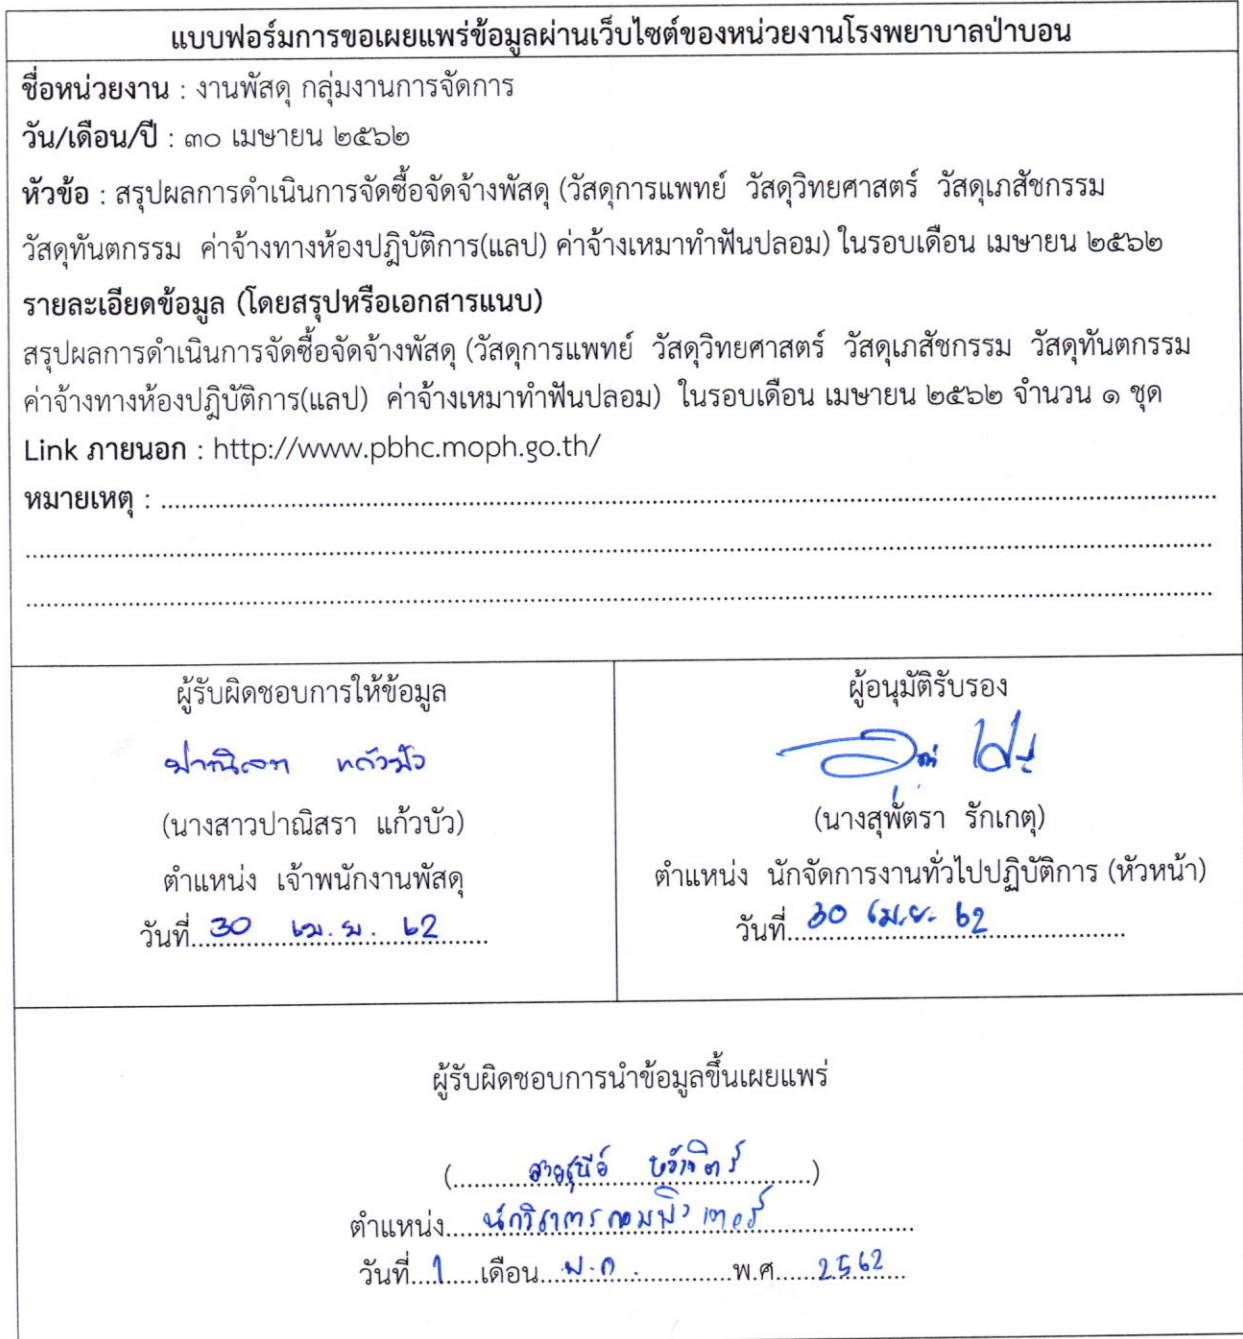 แบบฟอร์มการขอเผยแพร่ข้อมูลผ่านเว็บไซต์ของหน่วยงานโรงพยาบาลป่าบอน
ชื่อหน่วยงาน : งานพัสดุ กลุ่มงานการจัดการ
วัน/เดือน/ปี : ๓๐ เมษายน ๒๕๖๒
หัวข้อ : สรุปผลการดำเนินการจัดซื้อจัดจ้างพัสดุ (วัสดุการแพทย์ วัสดุวิทยศาสตร์ วัสดุเภสัชกรรม
วัสดุทันตกรรม ค่าจ้างทางห้องปฏิบัติการ(แลป) ค่าจ้างเหมาทำฟันปลอม) ในรอบเดือน เมษายน ๒๕๖๒
รายละเอียดข้อมูล (โดยสรุปหรือเอกสารแนบ)
สรุปผลการดำเนินการจัดซื้อจัดจ้างพัสดุ (วัสดุการแพทย์ วัสดุวิทยศาสตร์ วัสดุเภสัชกรรม วัสดุทันตกรรม
ค่าจ้างทางห้องปฏิบัติการ(แลป) ค่าจ้างเหมาทำฟันปลอม) ในรอบเดือน เมษายน ๒๕๖๒ จำนวน ๑ ชุด
Link ภายนอก : http://www.pbhc.moph.go.th/
หมายเหตุ :
ผู้รับผิดชอบการให้ข้อมูล
ปาณิสรา แก้วบัว
(นางสาวปาณิสรา แก้วบัว)
ตำแหน่ง เจ้าพนักงานพัสดุ
วันที่ 30 เม.ย. 62
ผู้อนุมัติรับรอง
(นางสุพัตรา รักเกตุ)
ตำแหน่ง นักจัดการงานทั่วไปปฏิบัติการ (หัวหน้า)
วันที่ 30 เม.ย. 62
ผู้รับผิดชอบการนำข้อมูลขึ้นเผยแพร่
ตำแหน่ง นักวิชาการคอมพิวเตอร์
วันที่ 1 เดือน พ.ค. พ.ศ. 2562